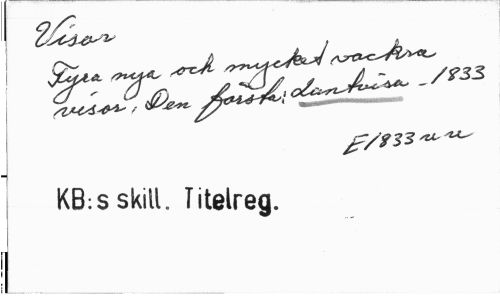 Visor
Fyra nya och mycket vackra
visor, Den första: Lantvisa - 1833
E1833
KB:s skill. Titelreg.